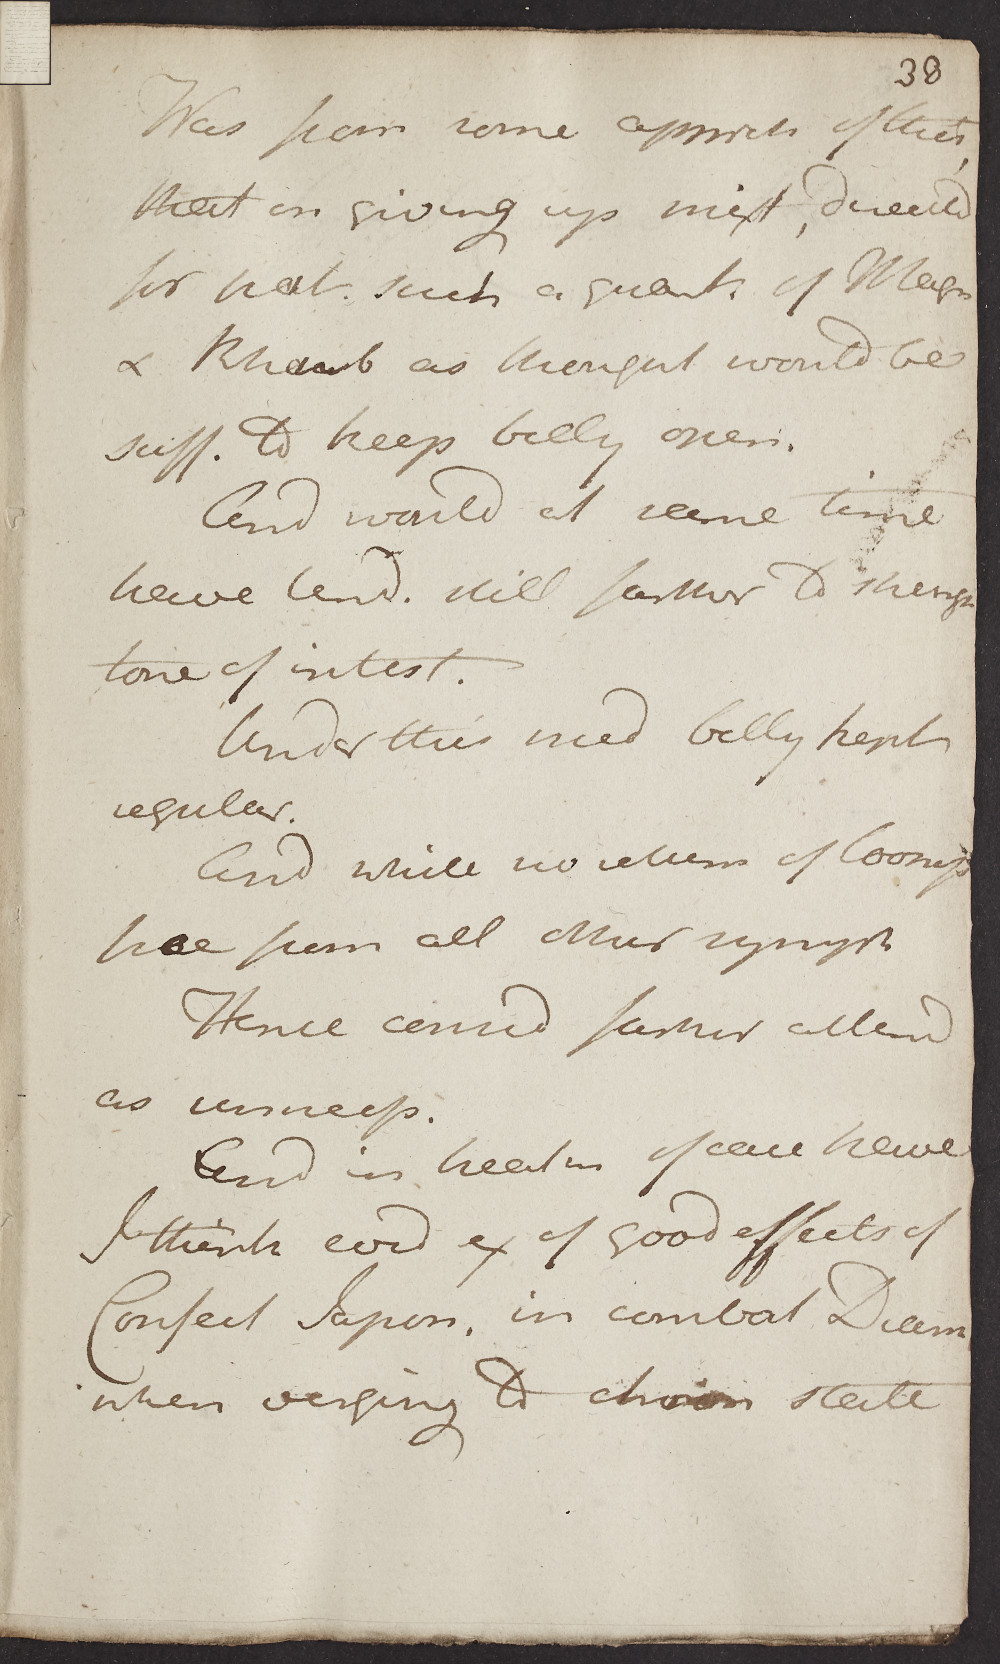 38
Was from some appreh of this,
that on giving up mixt, directed
for pat. such a quant. of Magn
& Rhaub as thought would be
suff. to keep belly open.
And would at same time
have tend. still farther to streng
tone of intest.
Under this med belly kept
regular.
And while no return of Loosness
free from all other sympt
Hence considd farther attend
as unnecess.
And in treatm of case have
I think evid ex of good effects of
Confect Japon. in combat Diarrh
when verging to chron state